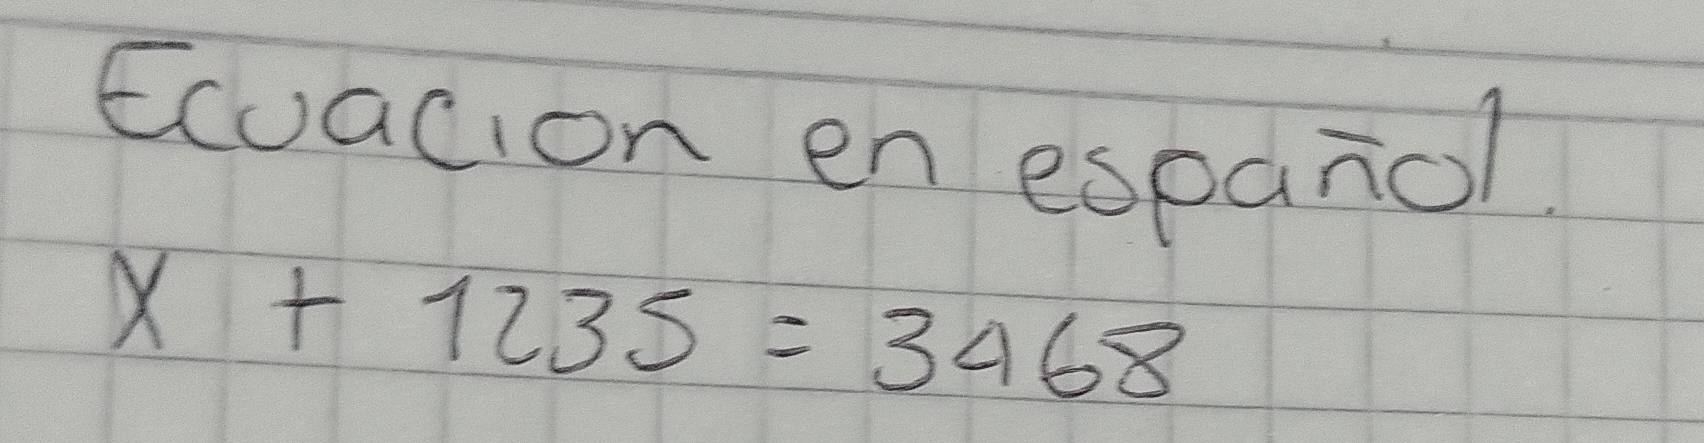 Ecuacion en español.
X + 1235 = 3468